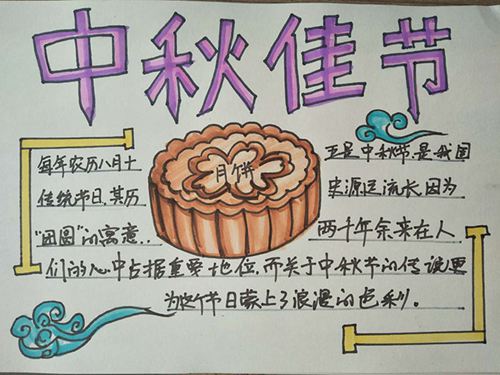 中秋佳节
月饼
每年农历八月十 五是中秋节.是我国
传统节日,其历 史源远流长.因为
"团圆"的寓意,. 两千年余来在人
们的心中占据重要地位,而关于中秋节的传说更
为这个节日蒙上了浪漫的色彩。